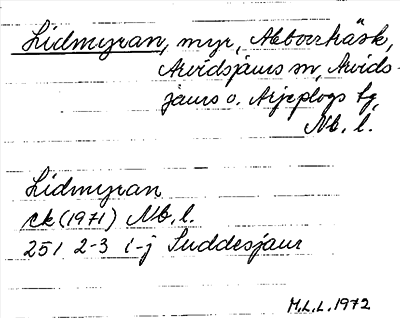 Lidmyran, myr, Abborrkäsk,
Arvidsjaurs sn, Arvids-
jaurs o. Arjeplogs tg,
Nb. l.
Lidmyran
ek (1971) Nb. l.
25 I 2-3 i-j Suddesjaur
M.L.L. 1972